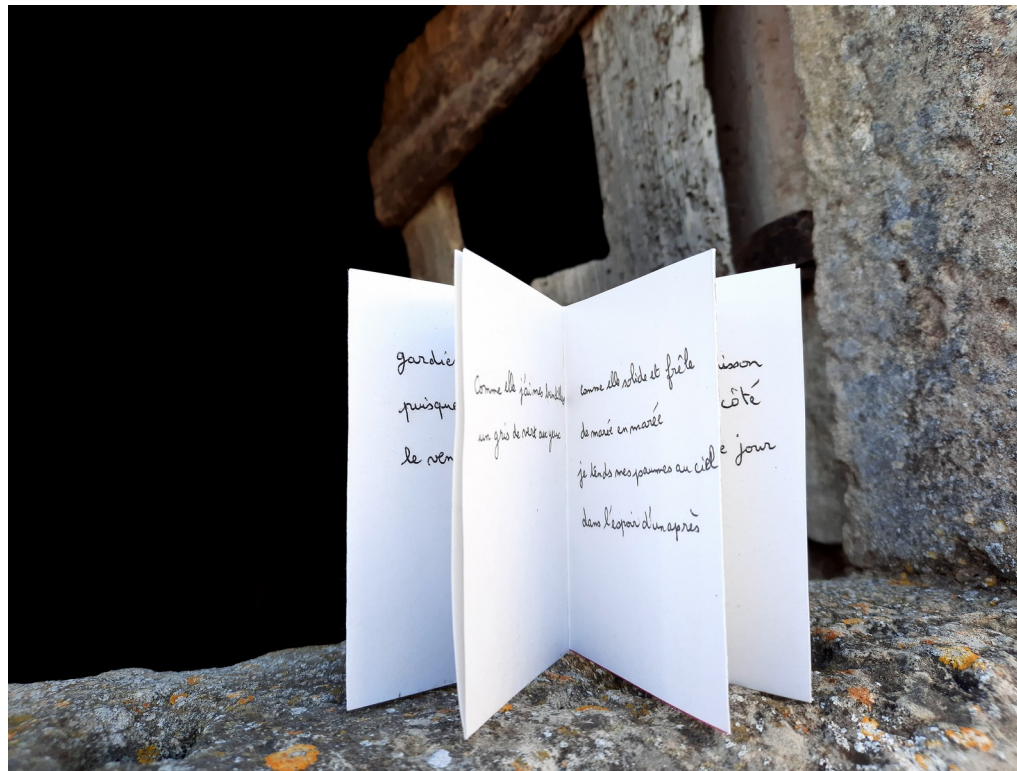 gardie
puisque
le ven
Comme elle j'ai mes
un gris de vert aux yeux
comme elle solide et frêle
de marée en marée
je tends mes paumes au ciel
dans l'espoir d'un après
isson
côté
e jour